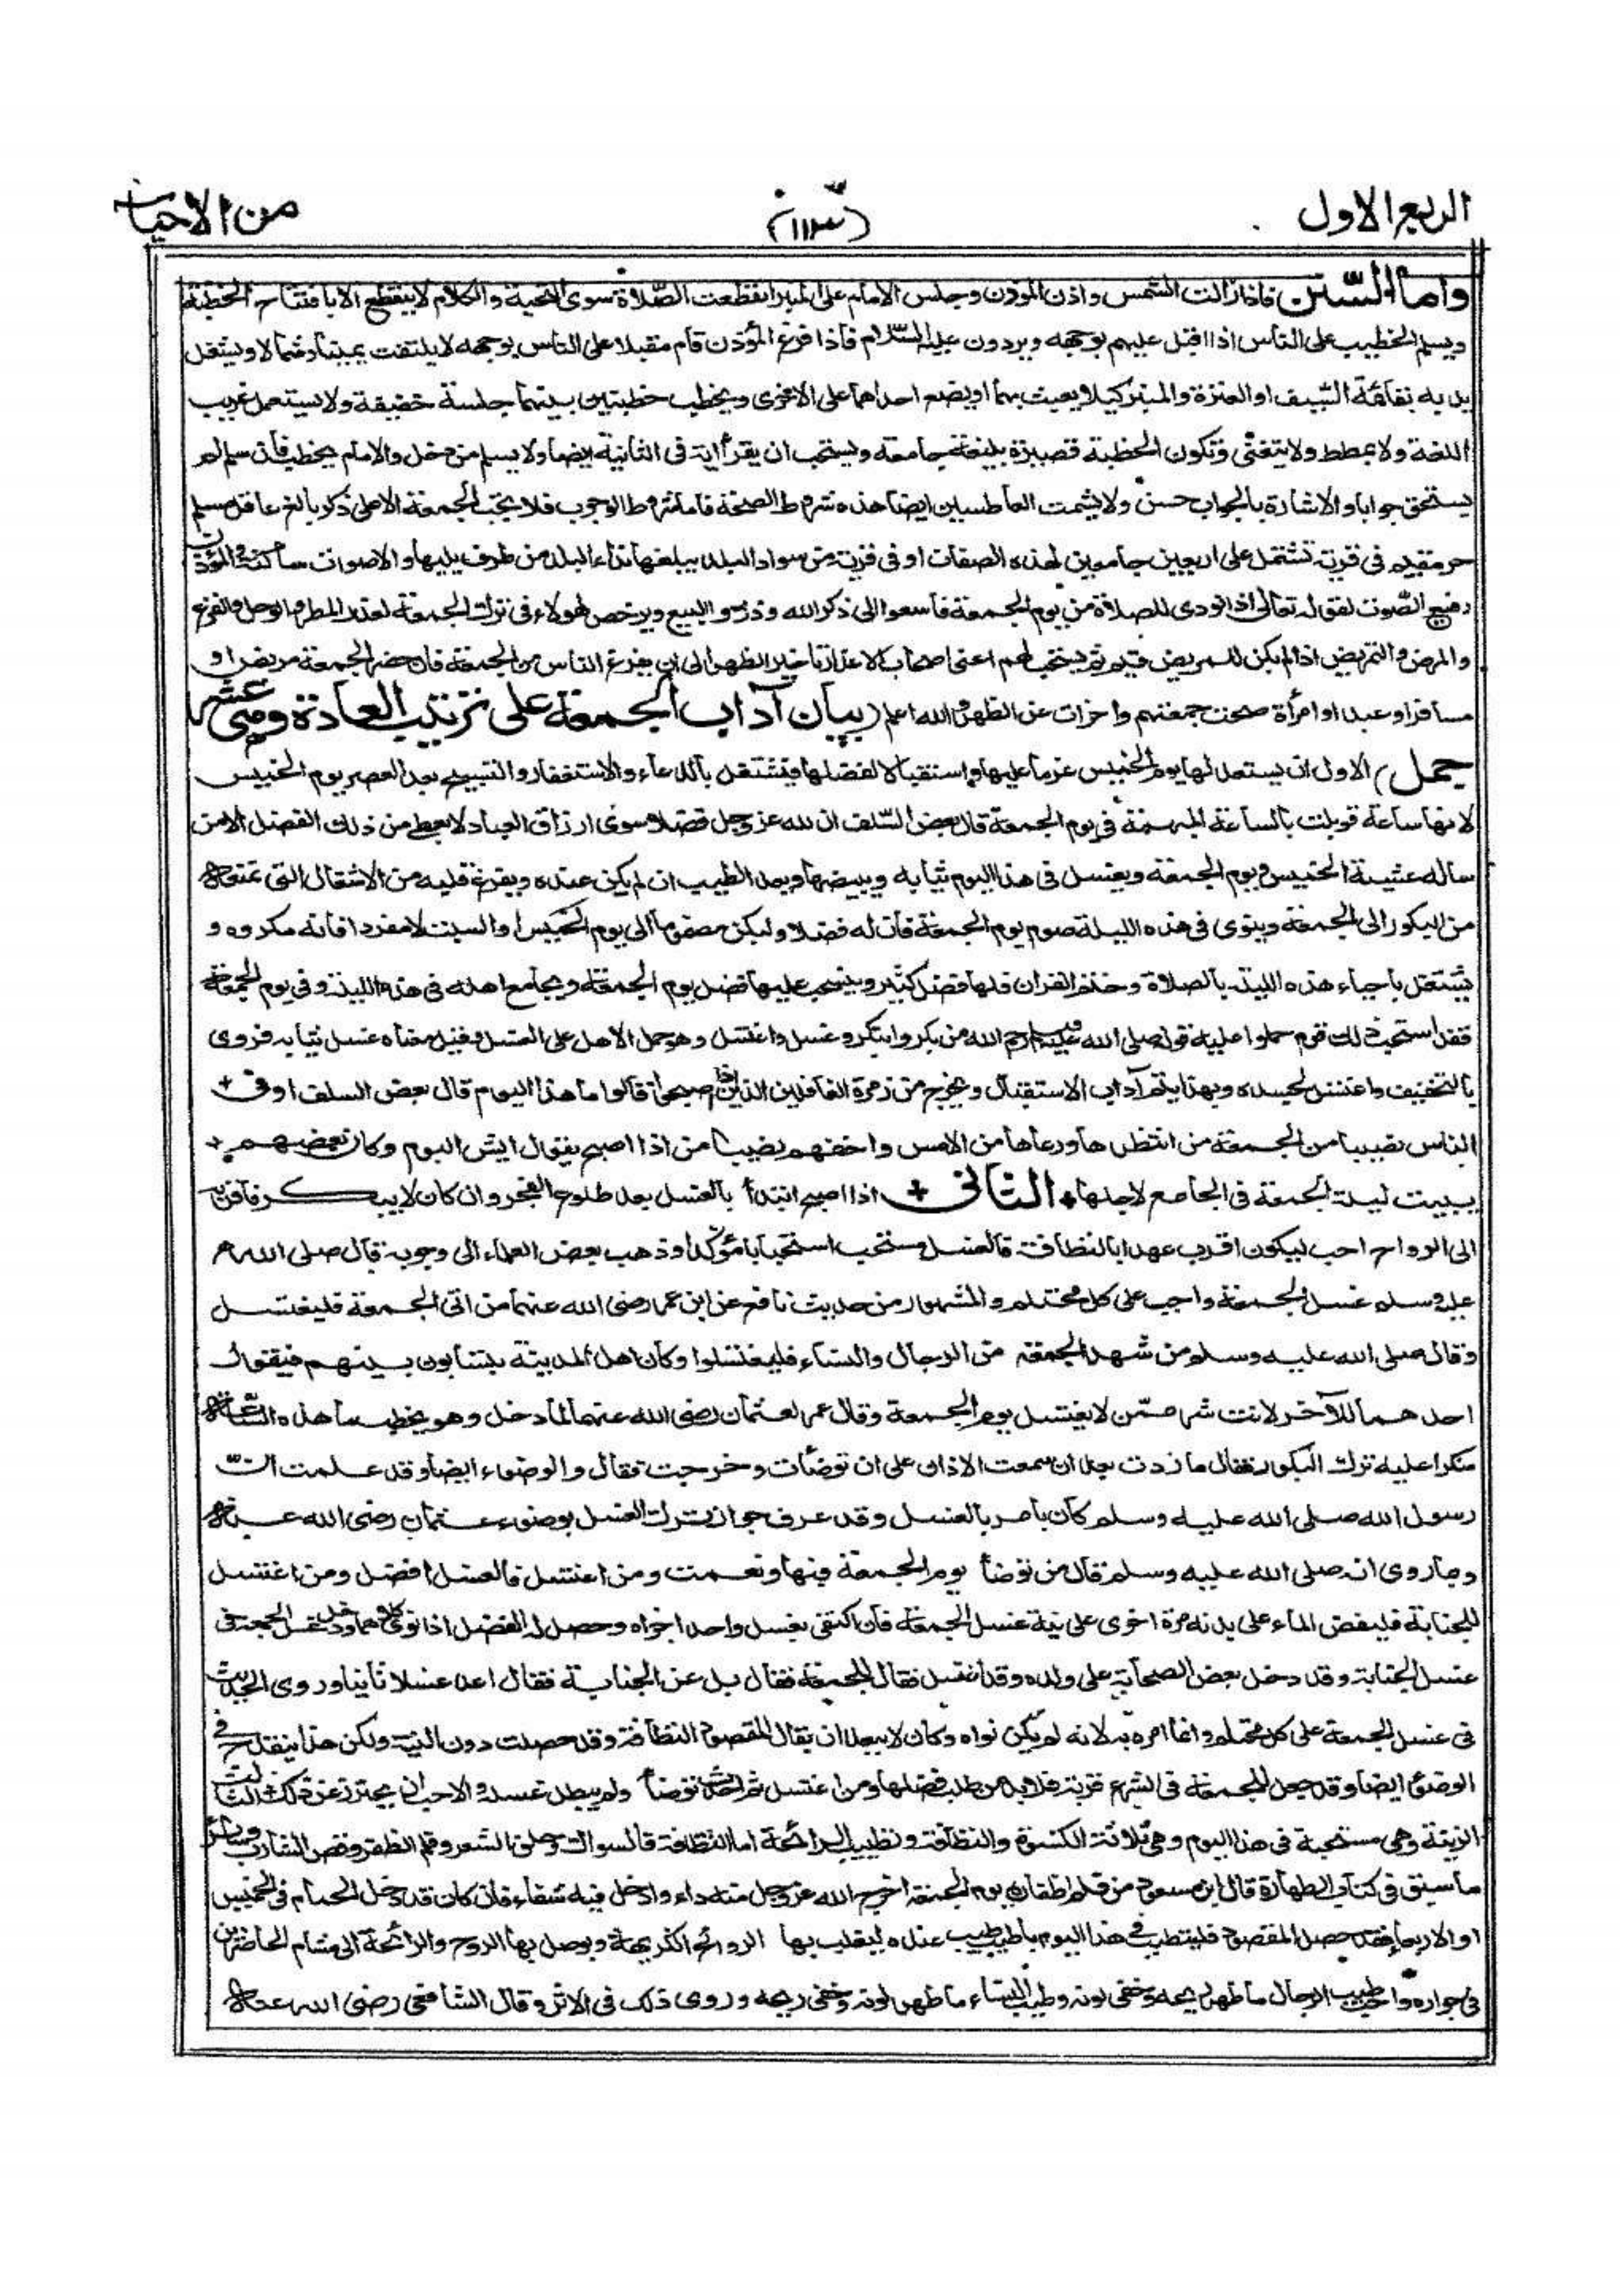 الربع الاول
(١١٣)
من الاحياء
واما السنن فاذا زالت الشمس واذن المؤذن وجلس الامام على المنبر انقطعت الصلاة سوى التحية والكلام لا ينقطع الا بافتتاح الخطبة
ويسلم الخطيب على الناس اذا اقبل عليهم بوجهه ويردون عليه السلام فاذا فرغ المؤذن قام مقبلا على الناس بوجهه لا يلتفت يمينا وشمالا ويشغل
يديه بقائمة السيف او العنزة والمنبر كيلا يعبث بهما او يضع احداهما على الاخرى ويخطب خطبتين بينهما جلسة خفيفة ولا يستعمل غريب
اللغة ولا يمطط ولا يتغنى وتكون الخطبة قصيرة بليغة جامعة ويستحب ان يقرأ اية فى الثانية ايضا ولا يسلم من دخل والامام يخطب فان سلم لم
يستحق جوابا والاشارة بالجواب حسن ولا يشمت العاطسين ايضا هذه شروط الصحة فاما شروط الوجوب فلا تجب الجمعة الا على ذكر بالغ عاقل مسلم
حر مقيم فى قرية تشتمل على اربعين جامعين لهذه الصفات او فى قرية من سواد البلد يبلغها نداء البلد من طرف يليها والاصوات ساكنة والمؤذن
رفيع الصوت لقوله تعالى اذا نودى للصلاة من يوم الجمعة فاسعوا الى ذكر الله وذروا البيع ويرخص لهؤلاء فى ترك الجمعة لعذر المطر والوحل والفزع
والمرض والتمريض اذا لم يكن للمريض قيم غيره ثم يستحب لهم اعنى اصحاب الاعذار تاخير الظهر الى ان يفرغ الناس من الجمعة فان حضر الجمعة مريض او
مسافر او عبد او امرأة صحت جمعتهم واجزات عن الظهر والله اعلم (بيان آداب الجمعة على ترتيب العادة وهى عشر
جمل) الاول ان يستعد لها يوم الخميس عزما عليها واستقبالا لفضلها فيشتغل بالدعاء والاستغفار والتسبيح بعد العصر يوم الخميس
لانها ساعة قوبلت بالساعة المبهمة فى يوم الجمعة قال بعض السلف ان لله عز وجل فضلا سوى ارزاق العباد لا يعطى من ذلك الفضل الا من
ساله عشية الخميس ويوم الجمعة ويغسل فى هذا اليوم ثيابه ويبيضها ويعد الطيب ان لم يكن عنده ويفرغ قلبه من الاشغال التى تمنعه
من البكور الى الجمعة وينوى فى هذه الليلة صوم يوم الجمعة فان له فضلا وليكن مضموما الى يوم الخميس او السبت لا مفردا فانه مكروه و
يشتغل باحياء هذه الليلة بالصلاة وختم القران فلها فضل كثير وينسحب عليها فضل يوم الجمعة ويجامع اهله فى هذه الليلة وفى يوم الجمعة
فقد استحب ذلك قوم حملوا عليه قوله صلى الله عليه وسلم رحم الله من بكر وابتكر وغسل واغتسل وهو حمل الاهل على الغسل وقيل معناه غسل ثيابه فروى
بالتخفيف واغتسل لجسده وبهذا يتم آداب الاستقبال ويخرج من زمرة الغافلين الذين اذا اصبحوا قالوا ما هذا اليوم قال بعض السلف اوفى +
الناس نصيبا من الجمعة من انتظرها ورعاها من الامس واخفهم نصيبا من اذا اصبح يقول ايش اليوم وكان بعضهم +
يبيت ليلة الجمعة فى الجامع لاجلها + الثانى + اذا اصبح ابتدأ بالغسل بعد طلوع الفجر وان كان لا يبكر فاقربه
الى الرواح احب ليكون اقرب عهدا بالنظافة فالغسل مستحب استحبابا مؤكدا وذهب بعض العلماء الى وجوبه قال صلى الله
عليه وسلم غسل الجمعة واجب على كل محتلم والمشهور من حديث نافع عن ابن عمر رضى الله عنهما من اتى الجمعة فليغتسل
وقال صلى الله عليه وسلم من شهد الجمعة من الرجال والنساء فليغتسلوا وكان اهل المدينة يتسابون بينهم فيقول
احدهما للآخر لانت شر ممن لا يغتسل يوم الجمعة وقال عمر لعثمان رضى الله عنهما لما دخل وهو يخطب ما هذه الساعة
منكرا عليه ترك البكور فقال ما زدت بعد ان سمعت الاذان على ان توضأت وخرجت فقال والوضوء ايضا وقد علمت ان
رسول الله صلى الله عليه وسلم كان يأمر بالغسل وقد عرف جواز ترك الغسل بوضوء عثمان رضى الله عنه
وبما روى انه صلى الله عليه وسلم قال من توضأ يوم الجمعة فبها ونعمت ومن اغتسل فالغسل افضل ومن اغتسل
للجنابة فليفض الماء على بدنه مرة اخرى على نية غسل الجمعة فان اكتفى بغسل واحد اجزاه وحصل له الفضل اذا نوى كلاهما ودخل غسل الجمعة فى
غسل الجنابة وقد دخل بعض الصحابة على ولده وقد اغتسل فقال للجمعة فقال بل عن الجنابة فقال اعد غسلا ثانيا وروى الحديث
فى غسل الجمعة على كل محتلم وانما امره به لانه لم يكن نواه وكان لا يبعد ان يقال المقصود النظافة وقد حصلت دون النية ولكن هذا ينقدح فى
الوضوء ايضا وقد جعل للجمعة فى الشرع قربة فلا بد من طلب فضلها ومن اغتسل ثم احدث توضأ ولم يبطل غسله والاحب ان يحترز عن ذلك الثالث
الزينة وهى مستحبة فى هذا اليوم وهى ثلاثة الكسوة والنظافة وتطييب الرائحة اما النظافة فالسواك وحلق الشعر وقلم الظفر وقص الشارب وسائر
ما سبق فى كتاب الطهارة قال ابن مسعود من قلم اظفاره يوم الجمعة اخرج الله عز وجل منه داء وادخل فيه شفاء فان كان قد دخل الحمام فى الخميس
او الاربعاء فقد حصل المقصود فليتطيب فى هذا اليوم باطيب طيب عنده ليغلب بها الروائح الكريهة ويوصل بها الروح والرائحة الى مشام الحاضرين
فى جواره واحب طيب الرجال ما ظهر ريحه وخفى لونه وطيب النساء ما ظهر لونه وخفى ريحه وروى ذلك فى الاثر وقال الشافعى رضى الله عنه